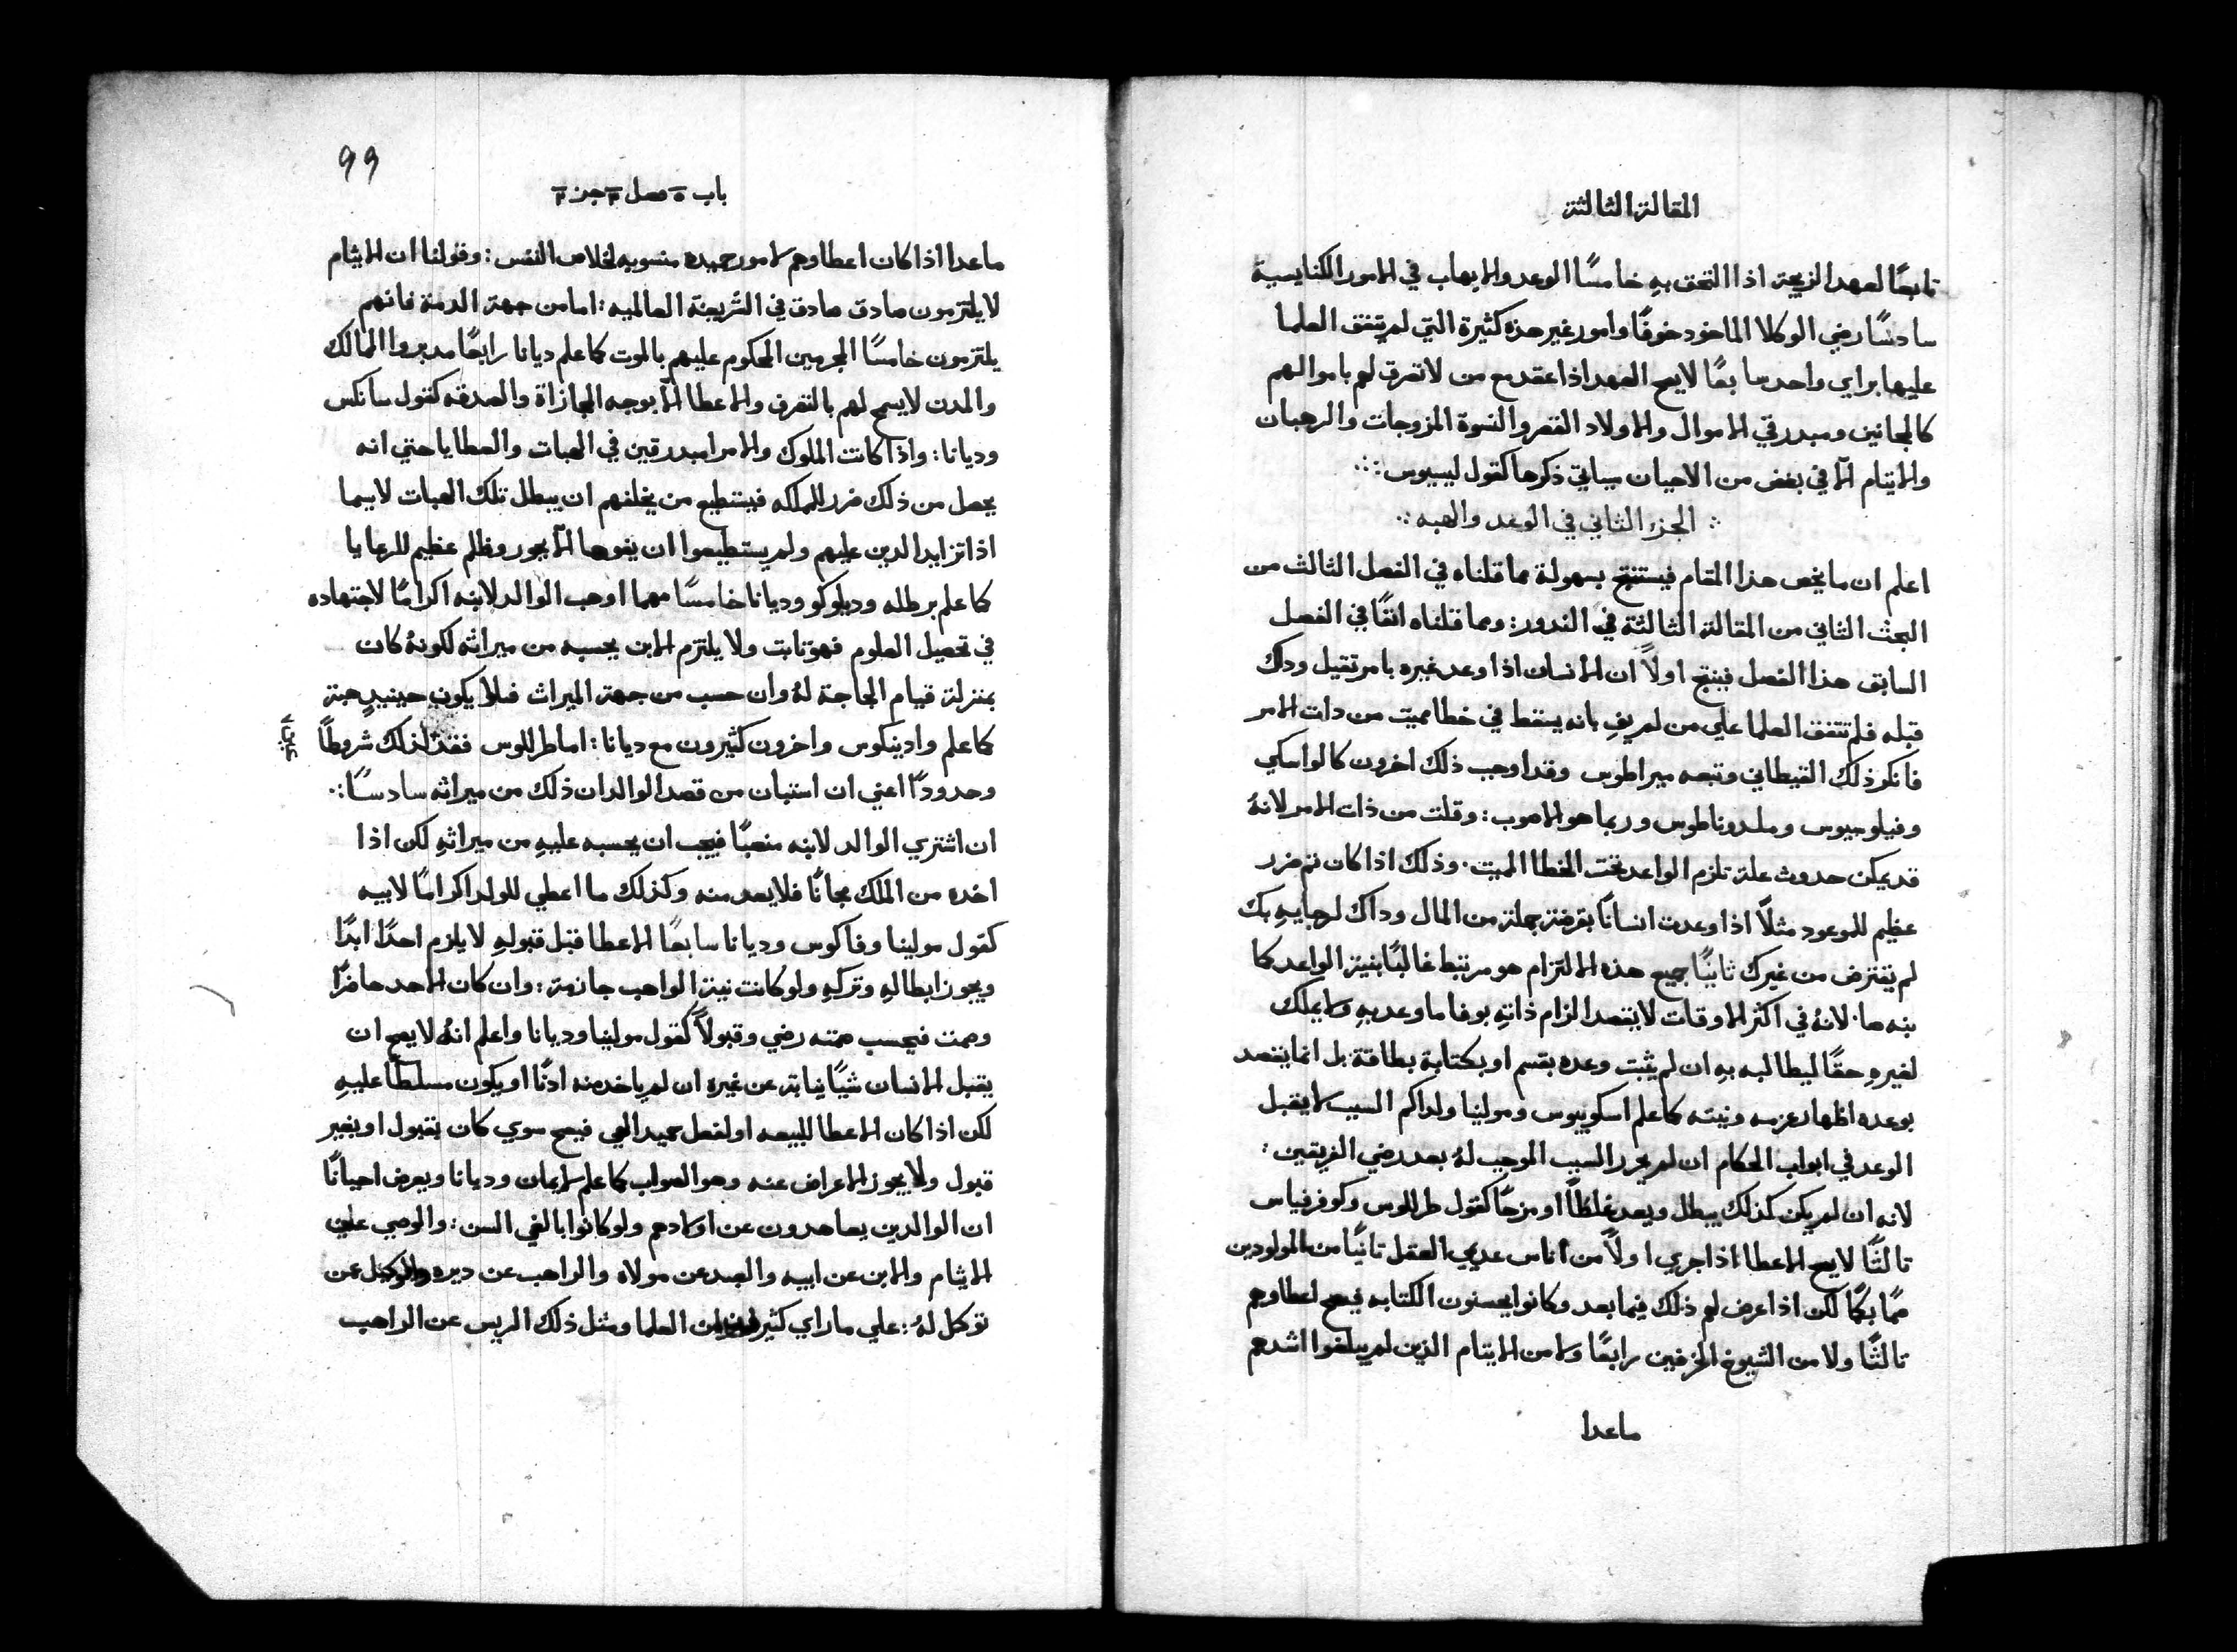 المقالة الثالثة
تابعًا لعهد الزيجة اذا التحق بهِ خامسًا الوعد والايهاب في الامور الكنايسية
سادسًا رضي الوكلا الماخود خوفًا وامور غير هذه كثيرة التي لم يتفق العلما
عليها براي واحد سابعًا لا يصح العهد اذا عقد مع من لا تصرف لهم باموالهم
كالمجانين ومبدرقي الاموال والاولاد القصر والنسوة المزوجات والرهبان
والايتام الا في بغض من الاحيان سياتي ذكرها كقول ليسيوس
الجزء الثاني في الوعد والهبه
اعلم ان ما يخص هذا المقام فيستنتج بسهولة مما قلناه في الفصل الثالث من
البحث الثاني من المقالة الثالثة في الندور: ومما قلناه انفًا في الفصل
السابق هذا الفصل فينتج اولاً ان الانسان اذا وعد غيره بامر تقيل وداك
قبله فلم تتفق العلما علي من لم يفِ بانه يسقط في خطا مميت من دات الامر
فانكر ذلك القيطاني وتبعه ميراطوس وقد اوجب ذلك اخرون كالواسكي
وفيلوسيوس وملدوناطوس وربما هو الاصوب: وقلت من ذات الامر لانهُ
قد يمكن حدوث علة تلزم الواعد تحت الخطا المميت. وذلك اذا كان تم ضرر
عظيم للموعود مثلاً اذا وعدت انسانًا بقرضة جملة من المال وداك لرجايهِ بك
لم يقترض من غيرك ثانيًا جميع هذه الالتزام هو مرتبط غالبًا بنية الواعد كما
بنه صا. لانهُ في اكثر الاوقات لا يقصد الزام ذاتهِ بوفا ما وعد بهِ ولا يملك
لغيرهِ حقًا ليطالبه بهِ ان لم يثبت وعده بقسم او بكتابة بطاقة بل انما يقصد
بوعده اظهار عزمه ونيته كما علم اسكوبيوس ومولينا ولداكم السبب لا يقبل
الوعد في ابواب الحكام ان لم يحرر السبب الموجب لهُ بعد رضي الفريقين:
لانه ان لم يكن كذلك يبطل ويعد غلطًا او مزحًا كقول طرللوس وكوفرفياس
تالتًا لا يصح الاعطا اذا جري اولاً من اناس عديمي العقل تانيًا من المولودين
صمًا بكمًا لكن اذا عرض لهم ذلك فيما بعد وكانوا يحسنون الكتابه فيصح اعطاوهم
تالتًا ولا من الشيوخ الخرفين رابعًا ولا من الايتام الذين لم يبلغوا اشدهم
ماعدا
99
باب ٥ فصل ٣ جز ٢
ماعدا اذا كان اعطاوهم لامور حميده منسوبه لخلاص النفس: وقولنا ان الايثام
لا يلتزمون صادق صادق في الشريعة العالميه: اما من جهة الدمة فانهم
يلتزمون خامسًا المجرمين المحكوم عليهم بالموت كما علم ديانا رابعًا مدبروا الممالك
والمدن لا يسمح لهم بالتصرف والاعطا الا بوجه المجازاة والصدقه كقول سانكس
وديانا: واذا كانت الملوك والامرا مبدرقين في الهبات والعطايا حتي انه
يحصل من ذلك ضرر للمملكه فيستطيع من يخلفهم ان يبطل تلك الهبات لاسيما
اذا تزايد الدين عليهم ولم يستطيعوا ان يفوها الا بجور وظلم عظيم للرعايا
كما علم برطله وديلوكو وديانا خامسًا مهما اوهب الوالد لابنه اكرامًا لاجتهاده
في تحصيل العلوم فهو ثابت ولا يلتزم الابن يحسبه من ميراثه لكونهُ كان
بمنزلة قيام الحاجة لهُ وان حسب من جهة الميراث فلا يكون حينيدٍ هبة
كما علم وادينكوس واخرون كثيرون مع ديانا: اما طرللوس فقد لذلك شروطًا
وحدودًا اعني ان استبان من قصد الوالد ان ذلك من ميراثه سادسًا:.
ان اشتري الوالد لابنه منصبًا فيجب ان يحسبه عليهِ من ميراثهِ لكن اذا
اخده من الملك مجانًا فلا يعد منه وكذلك ما اعطي للولد اكرامًا لابيه
كقول مولينا وفاكوس وديانا سابعًا الاعطا قبل قبولهِ لا يلزم احدًا ابدًا
ويجوز ابطالهِ وتركهِ ولو كانت نية الواهب جازمة: وان كان الاحد حاضرًا
وصمت فيحسب صمته رضي وقبولاً كقول مولينا وديانا واعلم انهُ لا يصح ان
يقبل الانسان شيًا نيابة عن غيره ان لم ياخد منه ادنًا او يكون مسلطًا عليهِ
لكن اذا كان الاعطا للبيعه او لفعل حميد الهي فيصح سوي كان بقبول او بغير
قبول ولا يجوز الاعراض عنه وهو الصواب كما علم لايمان وديانا ويعرض احيانًا
ان الوالدين يعاهدون عن اولادهم ولو كانوا بالغي السن: والوصي علي
الايثام والابن عن ابيه والعبد عن مولاه والراهب عن ديره والوكيل عن
توكل لهُ: علي ما راي كثيرون من العلما ومثل ذلك الريس عن الراهب